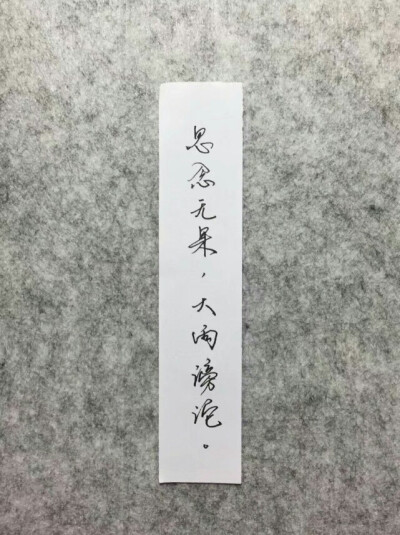 思念无果，大雨滂沱。